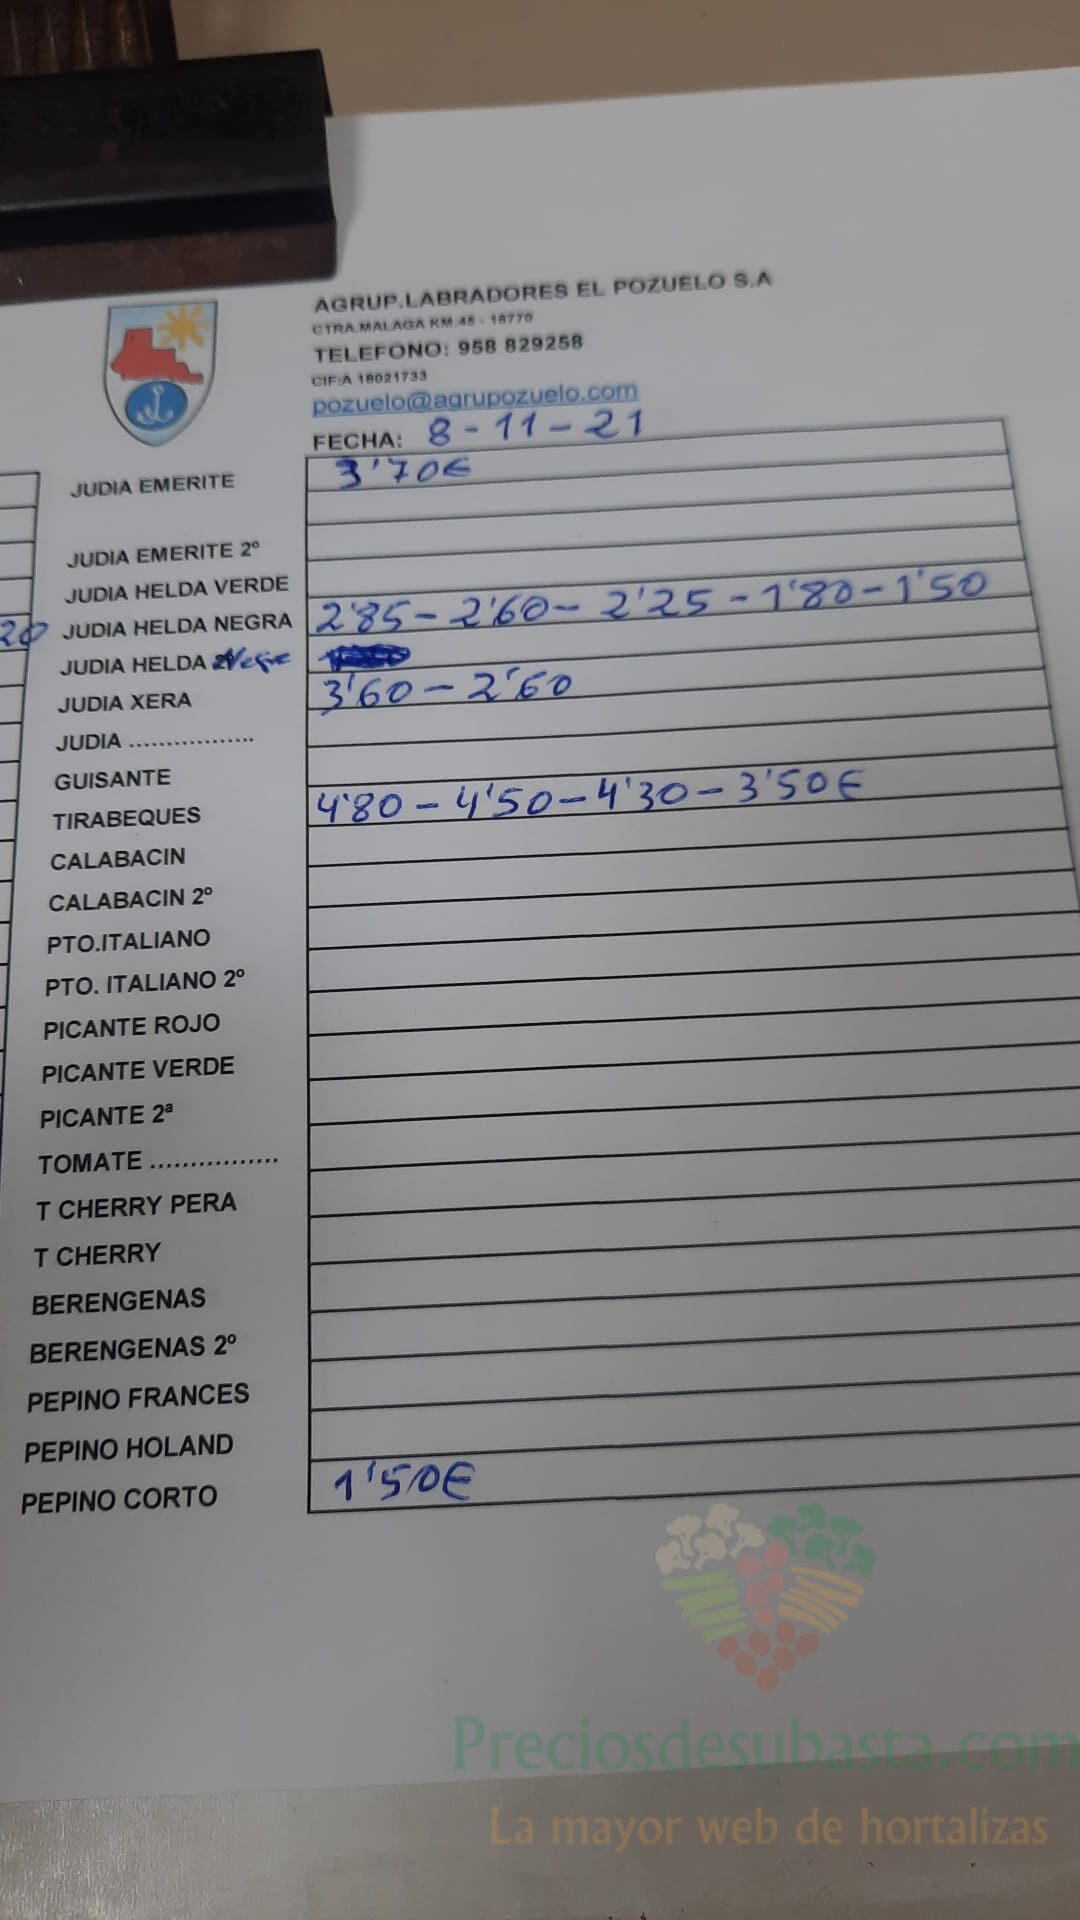 AGRUP.LABRADORES EL POZUELO S.A
CTRA.MALAGA KM.45 - 18770
TELEFONO: 958 829258
CIF:A 18021733
pozuelo@agrupozuelo.com
FECHA: 8-11-21
JUDIA EMERITE 3'70€
JUDIA EMERITE 2º
JUDIA HELDA VERDE
20
JUDIA HELDA NEGRA 2'85-2'60-2'25-1'80-1'50
JUDIA HELDA Negra
JUDIA XERA 3'60-2'60
JUDIA .................
GUISANTE
TIRABEQUES 4'80-4'50-4'30-3'50€
CALABACIN
CALABACIN 2º
PTO.ITALIANO
PTO. ITALIANO 2º
PICANTE ROJO
PICANTE VERDE
PICANTE 2ª
TOMATE .................
T CHERRY PERA
T CHERRY
BERENGENAS
BERENGENAS 2º
PEPINO FRANCES
PEPINO HOLAND
PEPINO CORTO 1'50€
Preciosdesubasta.com
La mayor web de hortalizas